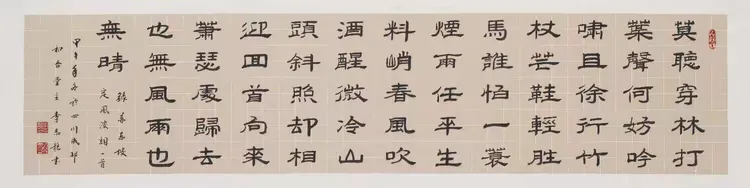 莫聽穿林打
葉聲何妨吟
嘯且徐行竹
杖芒鞋輕勝
馬誰怕一蓑
煙雨任平生
料峭春風吹
酒醒微冷山
頭斜照却相
迎回首向來
蕭瑟處歸去
也無風雨也
無晴
錄蘇東坡
定風波詞一首
甲午年冬於四川成都
堂主李志書